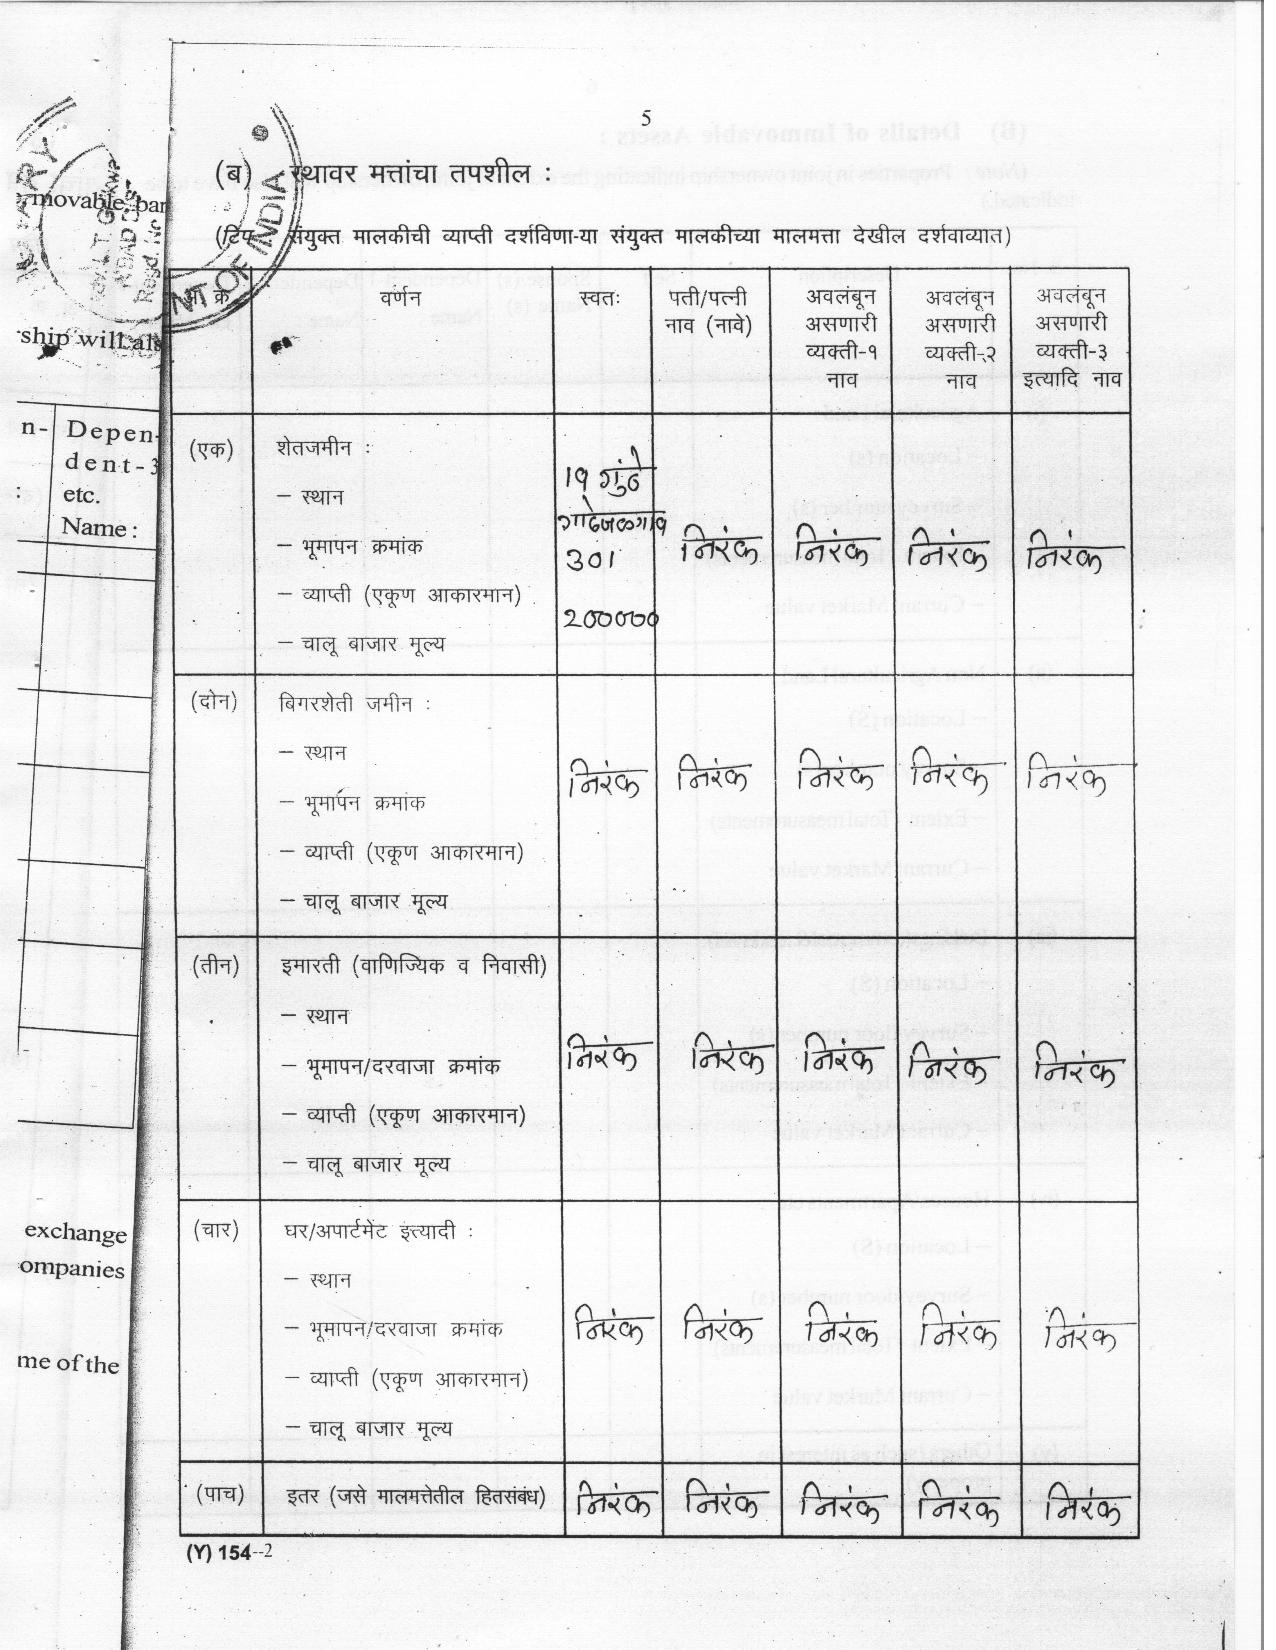 5
(ब) स्थावर मत्तांचा तपशील :
(टिप संयुक्त मालकीची व्याप्ती दर्शविणा-या संयुक्त मालकीच्या मालमत्ता देखील दर्शवाव्यात)
अ क्र वर्णन स्वतः पती/पत्नी नाव (नावे) अवलंबून असणारी व्यक्ती-१ नाव अवलंबून असणारी व्यक्ती-२ नाव अवलंबून असणारी व्यक्ती-३ इत्यादि नाव
(एक) शेतजमीन :
– स्थान
– भूमापन क्रमांक
– व्याप्ती (एकूण आकारमान)
– चालू बाजार मूल्य
१९ गुंठे
301
200000
निरंक निरंक निरंक निरंक
(दोन) बिगरशेती जमीन :
– स्थान
– भूमापन क्रमांक
– व्याप्ती (एकूण आकारमान)
– चालू बाजार मूल्य
निरंक निरंक निरंक निरंक निरंक
(तीन) इमारती (वाणिज्यिक व निवासी)
– स्थान
– भूमापन/दरवाजा क्रमांक
– व्याप्ती (एकूण आकारमान)
– चालू बाजार मूल्य
निरंक निरंक निरंक निरंक निरंक
(चार) घर/अपार्टमेंट इत्यादी :
– स्थान
– भूमापन/दरवाजा क्रमांक
– व्याप्ती (एकूण आकारमान)
– चालू बाजार मूल्य
निरंक निरंक निरंक निरंक निरंक
(पाच) इतर (जसे मालमत्तेतील हितसंबंध) निरंक निरंक निरंक निरंक निरंक
(Y) 154--2
movable, ban
ship will als
n- Depen-
dent-3
: etc.
Name:
exchange
ompanies
me of the
NT OF INDIA